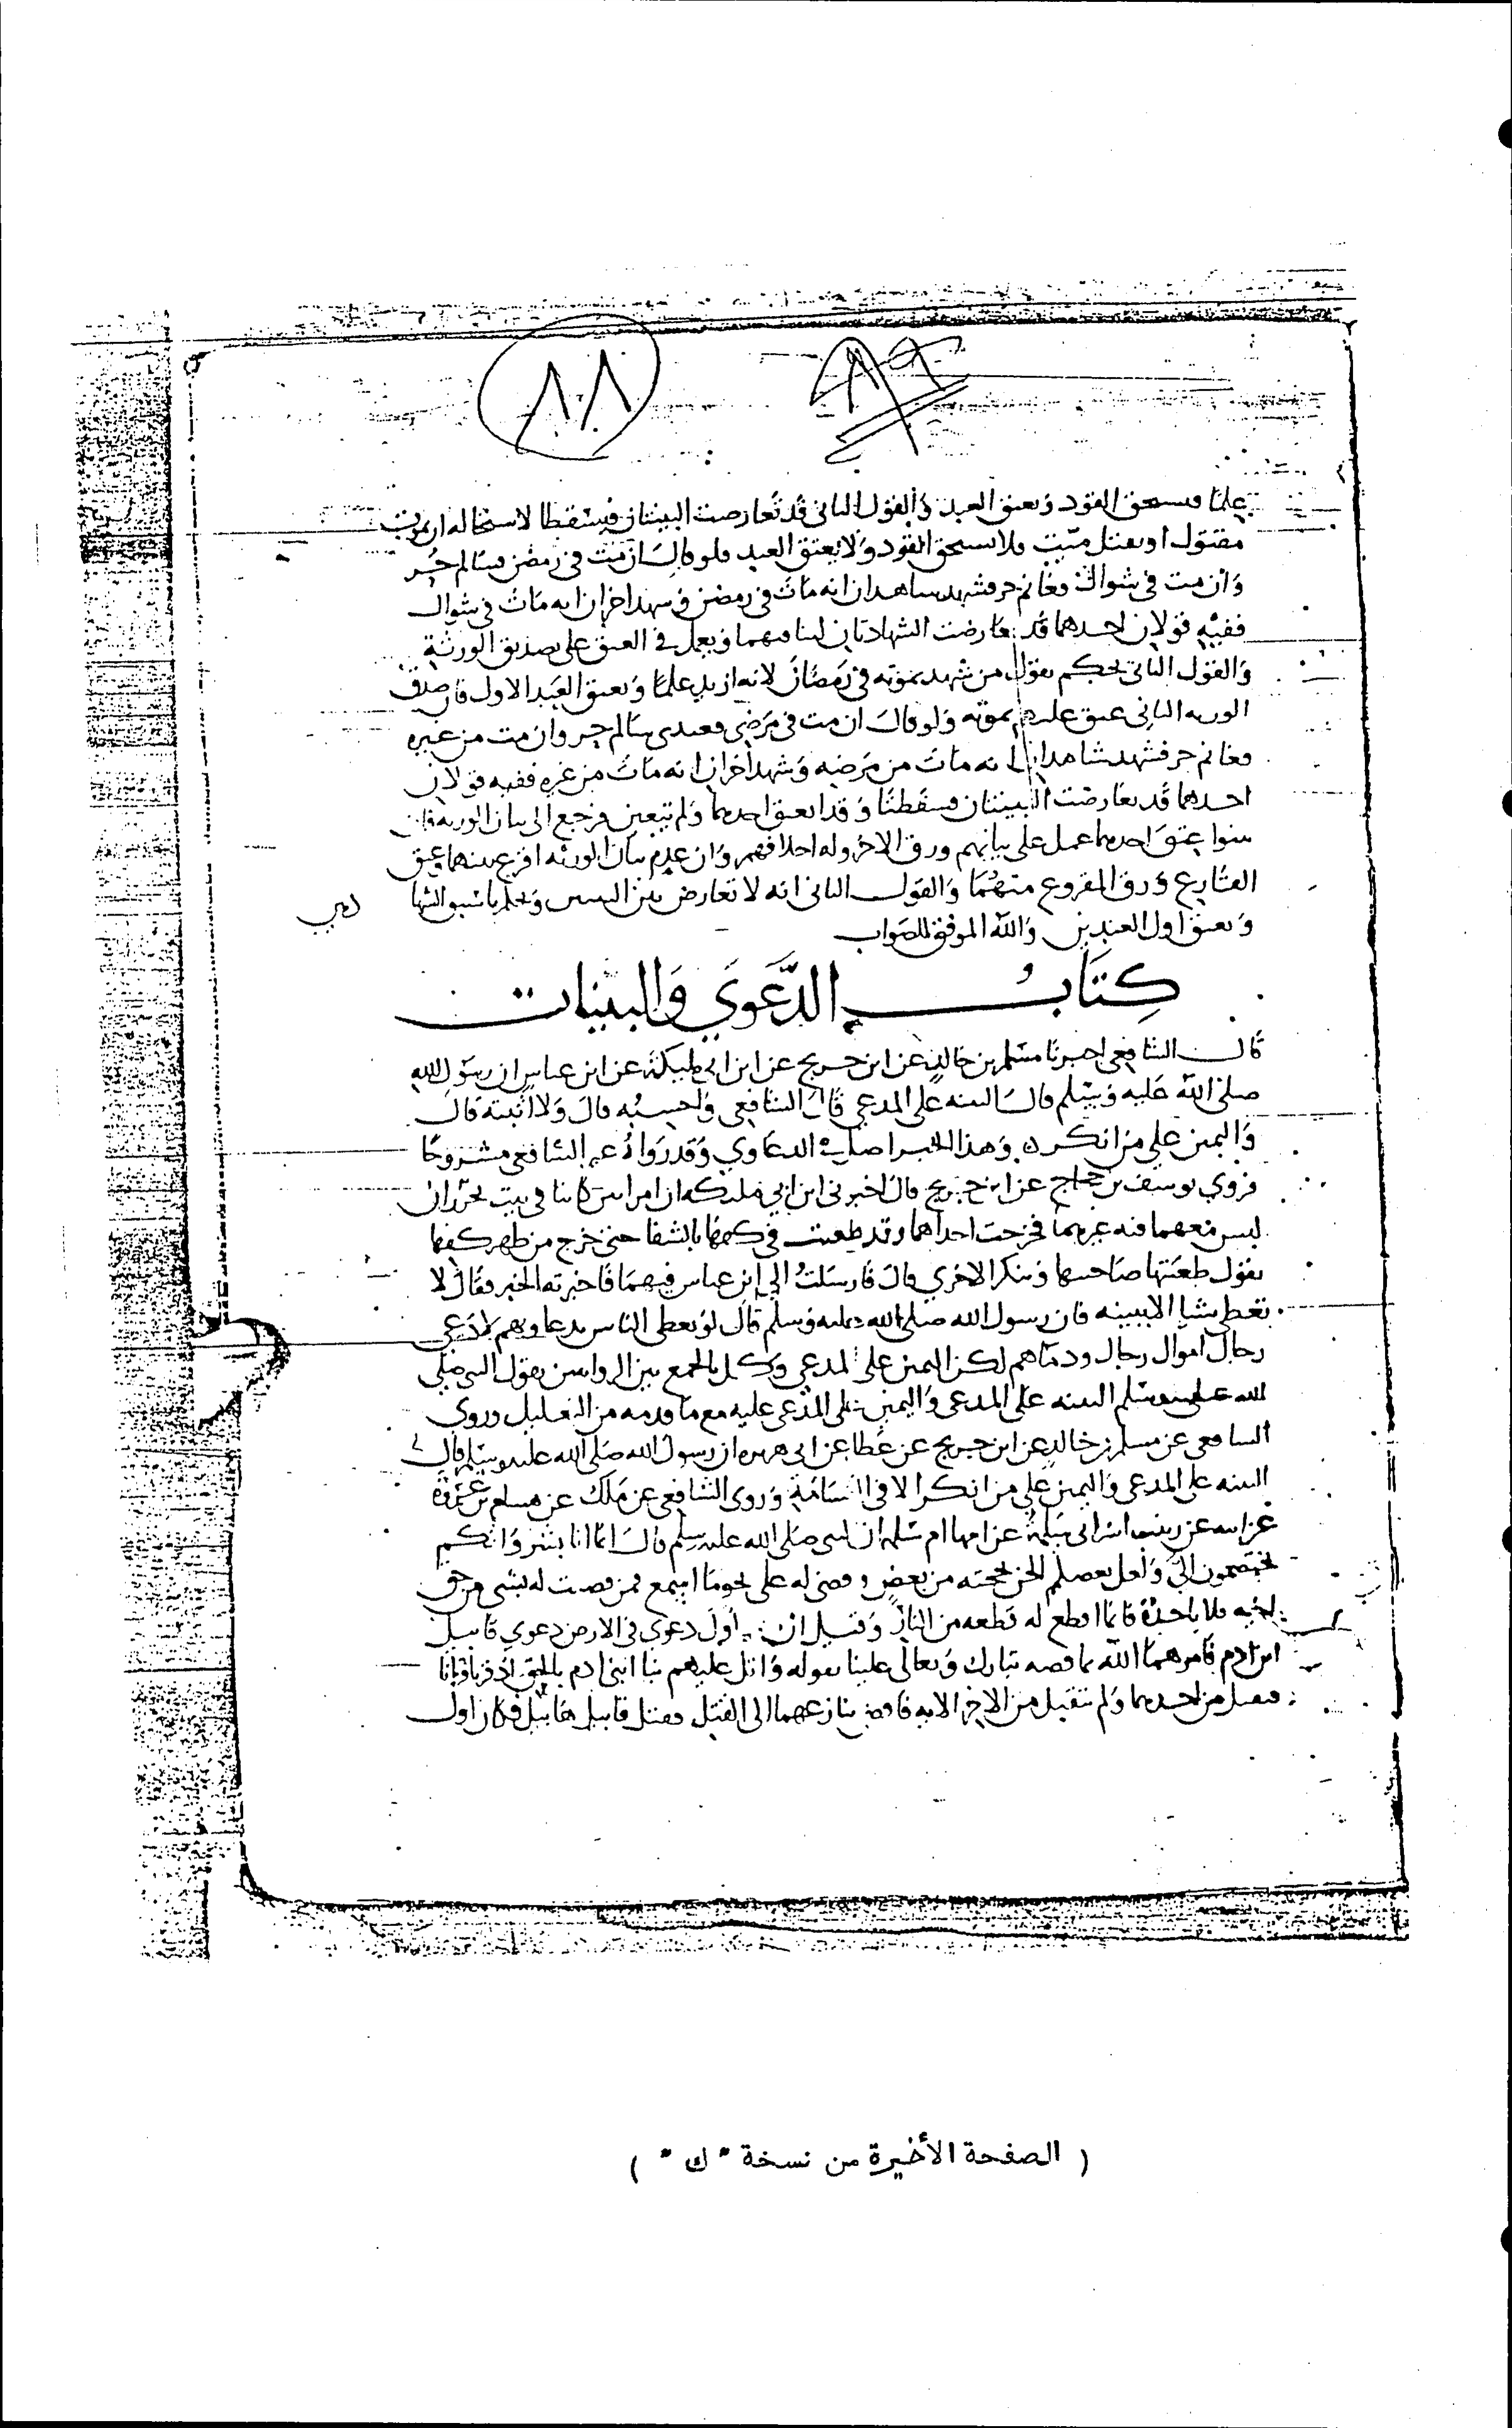 ٨٩
٨٨
علمًا فيستحق القود ويعتق العبد والقول الثاني قد تعارضت البينتان فيسقطا لاستحاله ان يموت
مقتول او يقتل ميت فلا يستحق القود ولا يعتق العبد فلو قال ان مت في رمضن فسالم حر
وان مت في شوال فغانم حر فشهد شاهدان انه مات في رمضن وشهد اخران انه مات في شوال
ففيه قولان احدهما قد تعارضت الشهادتان لتنافيهما ويعمل في العتق على تصديق الورثة
والقول الثاني يحكم بقول من شهد بموته في رمضان لانه ازيد علمًا ويعتق العبد الاول فان صدق
الورثه الثاني عتق عليهم بموته ولو قال ان مت في مرضي فعبدي سالم حر وان مت من غيره
فغانم حر فشهد شاهدان انه مات من مرضه وشهد اخران انه مات من غيره ففيه قولان
احدهما قد تعارضت البينتان فسقطتا وقد اعتق احدهما ولم يتعين فرجع الى بيان الورثة فان
بينوا عتق احدهما عمل على بيانهم ورق الاخر وله احلافهم وان عدم بيان الورثه اقرع بينهما وعتق
القارع ورق المقروع منهما والقول الثاني انه لا تعارض بين البينتين ويحكم باسبق الشها
دتين
ويعتق اول العبدين والله الموفق للصواب
كتاب الدعوي والبينات
قال الشافعي اخبرنا مسلم بن خالد عن ابن جريج عن ابن ابي مليكة عن ابن عباس ان رسول الله
صلى الله عليه وسلم قال البينه على المدعي قال الشافعي واحسبه قال ولا اثبته قال
واليمين علي من انكر وهذا الخبر اصل في الدعاوي وقد رواه غير الشافعي مشروحًا
فروي يوسف بن حجاج عن ابن جريج قال اخبرني ابن ابي مليكه ان امراتين كانتا في بيت تخرزان
ليس معهما فيه غيرهما فخرجت احداهما وقد طعنت في كفها باشفا حتى خرج من ظهر كفها
تقول طعنتها صاحبتها وتنكر الاخري قال فارسلت الي ابن عباس فيهما فاخبرته الخبر فقال لا
تعطي شيا الا ببينه فان رسول الله صلى الله عليه وسلم قال لو يعطى الناس بدعاويهم لادعي
رجال اموال رجال ودماهم لكن اليمين على المدعي وكمل بالجمع بين الروايتين بقول النبي صلى
الله عليه وسلم البينه على المدعى واليمين على المدعى عليه مع ما قدمه من التعليل وروى
الشافعي عن مسلم بن خالد عن ابن جريج عن عطا عن ابي هريره ان رسول الله صلى الله عليه وسلم قال
البينه على المدعى واليمين على من انكر الا في القسامة وروى الشافعي عن ملك عن هشام بن عروة
عن ابيه عن زينب ابنة ابي سلمة عن امها ام سلمه ان النبي صلى الله عليه وسلم قال انما انا بشر وانكم
تختصمون الي ولعل بعضكم الحن بحجته من بعض فاقضي له على نحو ما اسمع فمن قضيت له بشى من حق
اخيه فلا ياخذه فانما اقطع له قطعه من النار وقيل ان اول دعوى في الارض دعوي قابيل
ابن ادم فامرهما الله بما قصه تبارك وتعالى علينا بقوله واتل عليهم نبا ابني ادم بالحق اذ قربا قربانا
فتقبل من احدهما ولم يتقبل من الاخر الايه فافضى تنازعهما الى القتل فقتل قابيل هابيل فكان اول
( الصفحة الأخيرة من نسخة " ك " )